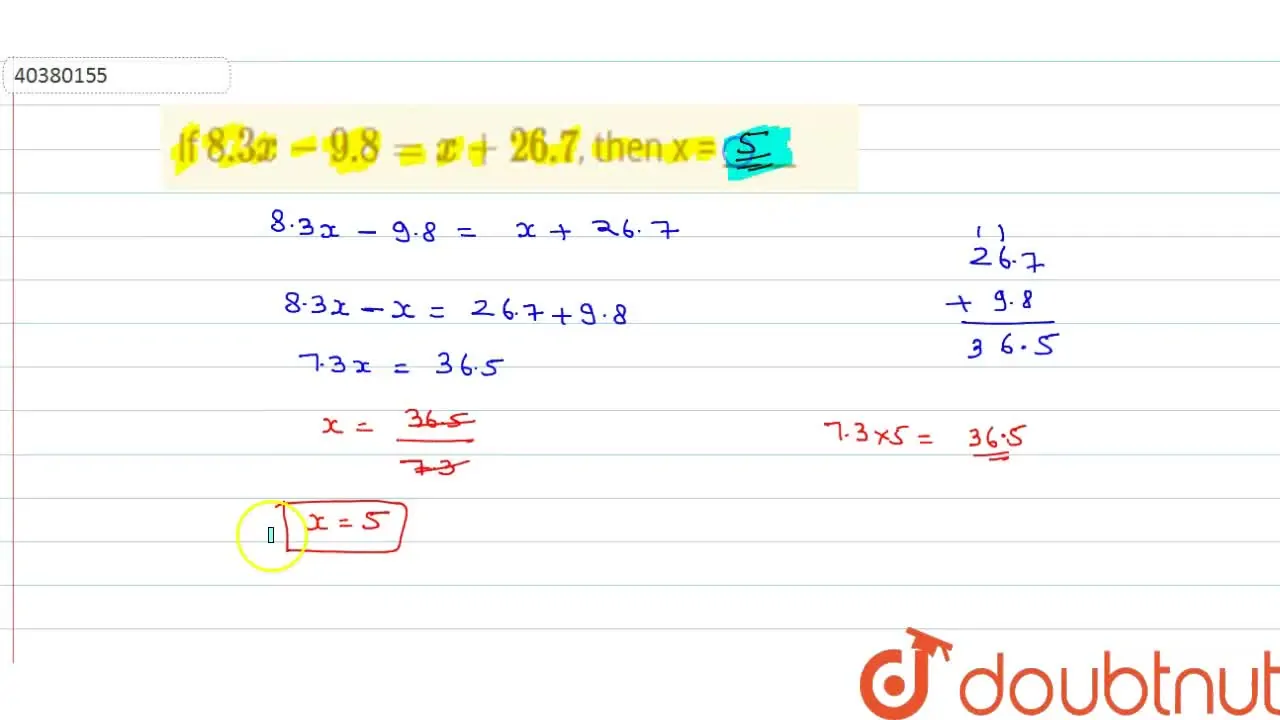 40380155
If 8.3x − 9.8 = x + 26.7, then x = 5
8.3x − 9.8 = x + 26.7
8.3x − x = 26.7 + 9.8
7.3x = 36.5
x = 36.5
7.3
x = 5
1 1
26.7
+ 9.8
36.5
7.3 × 5 = 36.5
doubtnut